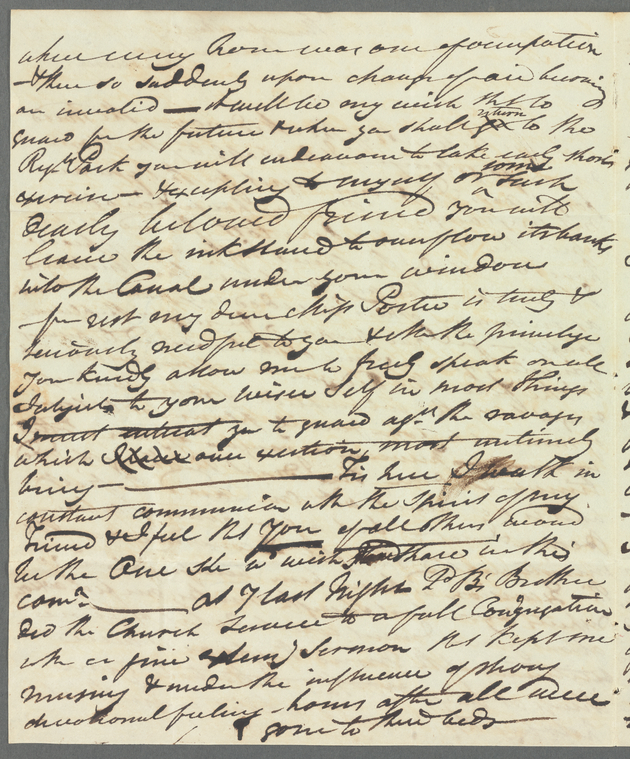 when every hour was one of occupation
& then so suddenly upon change of air becoming
an invalid — it will be my wish that to
guard for the future & when you shall return to the
Reg<sup>ts</sup> Park you will endeavour to take early short
exercise — & excepting to myself or some such
dearly beloved friend you will
leave the inkstand to overflow its banks
into the Canal under your window
— for rest my dear Miss Porter is truly &
seriously needful to you & with the privilege
you kindly allow me to freely speak on all
subjects to your wiser self in most things
I must intreat you to guard ag<sup>st</sup> the ravages
which over exertion most untimely
bring — Tis here I
constant communion with the Spirit of my
Friend & I feel tht You of all others would
be the One she w<sup>d</sup> wish in this
com<sup>n</sup> — at 7 last Night D<sup>r</sup> B's Brother
did the Church Service to a full Congregation
with a fine Sermon tht kept me
musing & under the influence of strong
devotional feeling — hours after all were
gone to their beds —